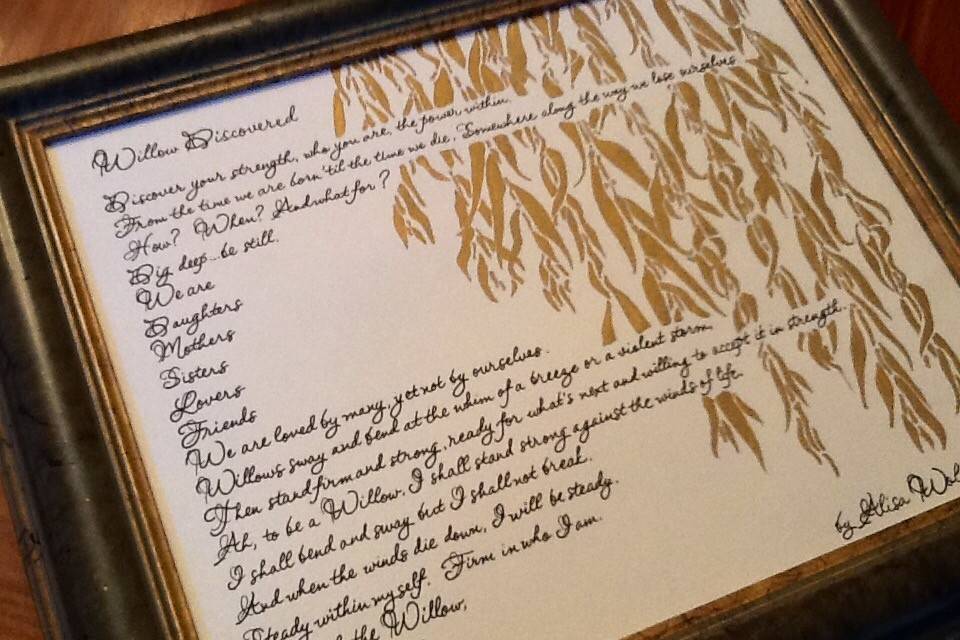 Willow Discovered
Discover your strength, who you are, the power within.
From the time we are born 'til the time we die. Somewhere along the way we lose ourselves
How? When? And what for?
Dig deep...be still.
We are
Daughters
Mothers
Sisters
Lovers
Friends
We are loved by many, yet not by ourselves.
Willows sway and bend at the whim of a breeze or a violent storm,
Then stand firm and strong, ready for what's next and willing to accept it in strength.
Ah, to be a Willow. I shall stand strong against the winds of life.
I shall bend and sway but I shall not break.
And when the winds die down, I will be steady.
Steady within myself. Firm in who I am.
the Willow,
by Alisa